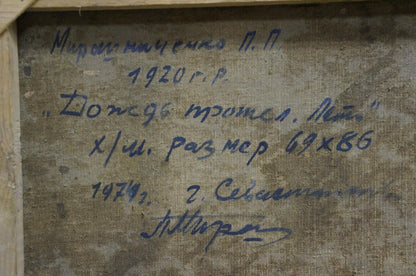 Мирошниченко П. П
1920 г.р.
„Дождь прошел. Лето"
х/м. размер 69х86
1974г. г. Севастополь